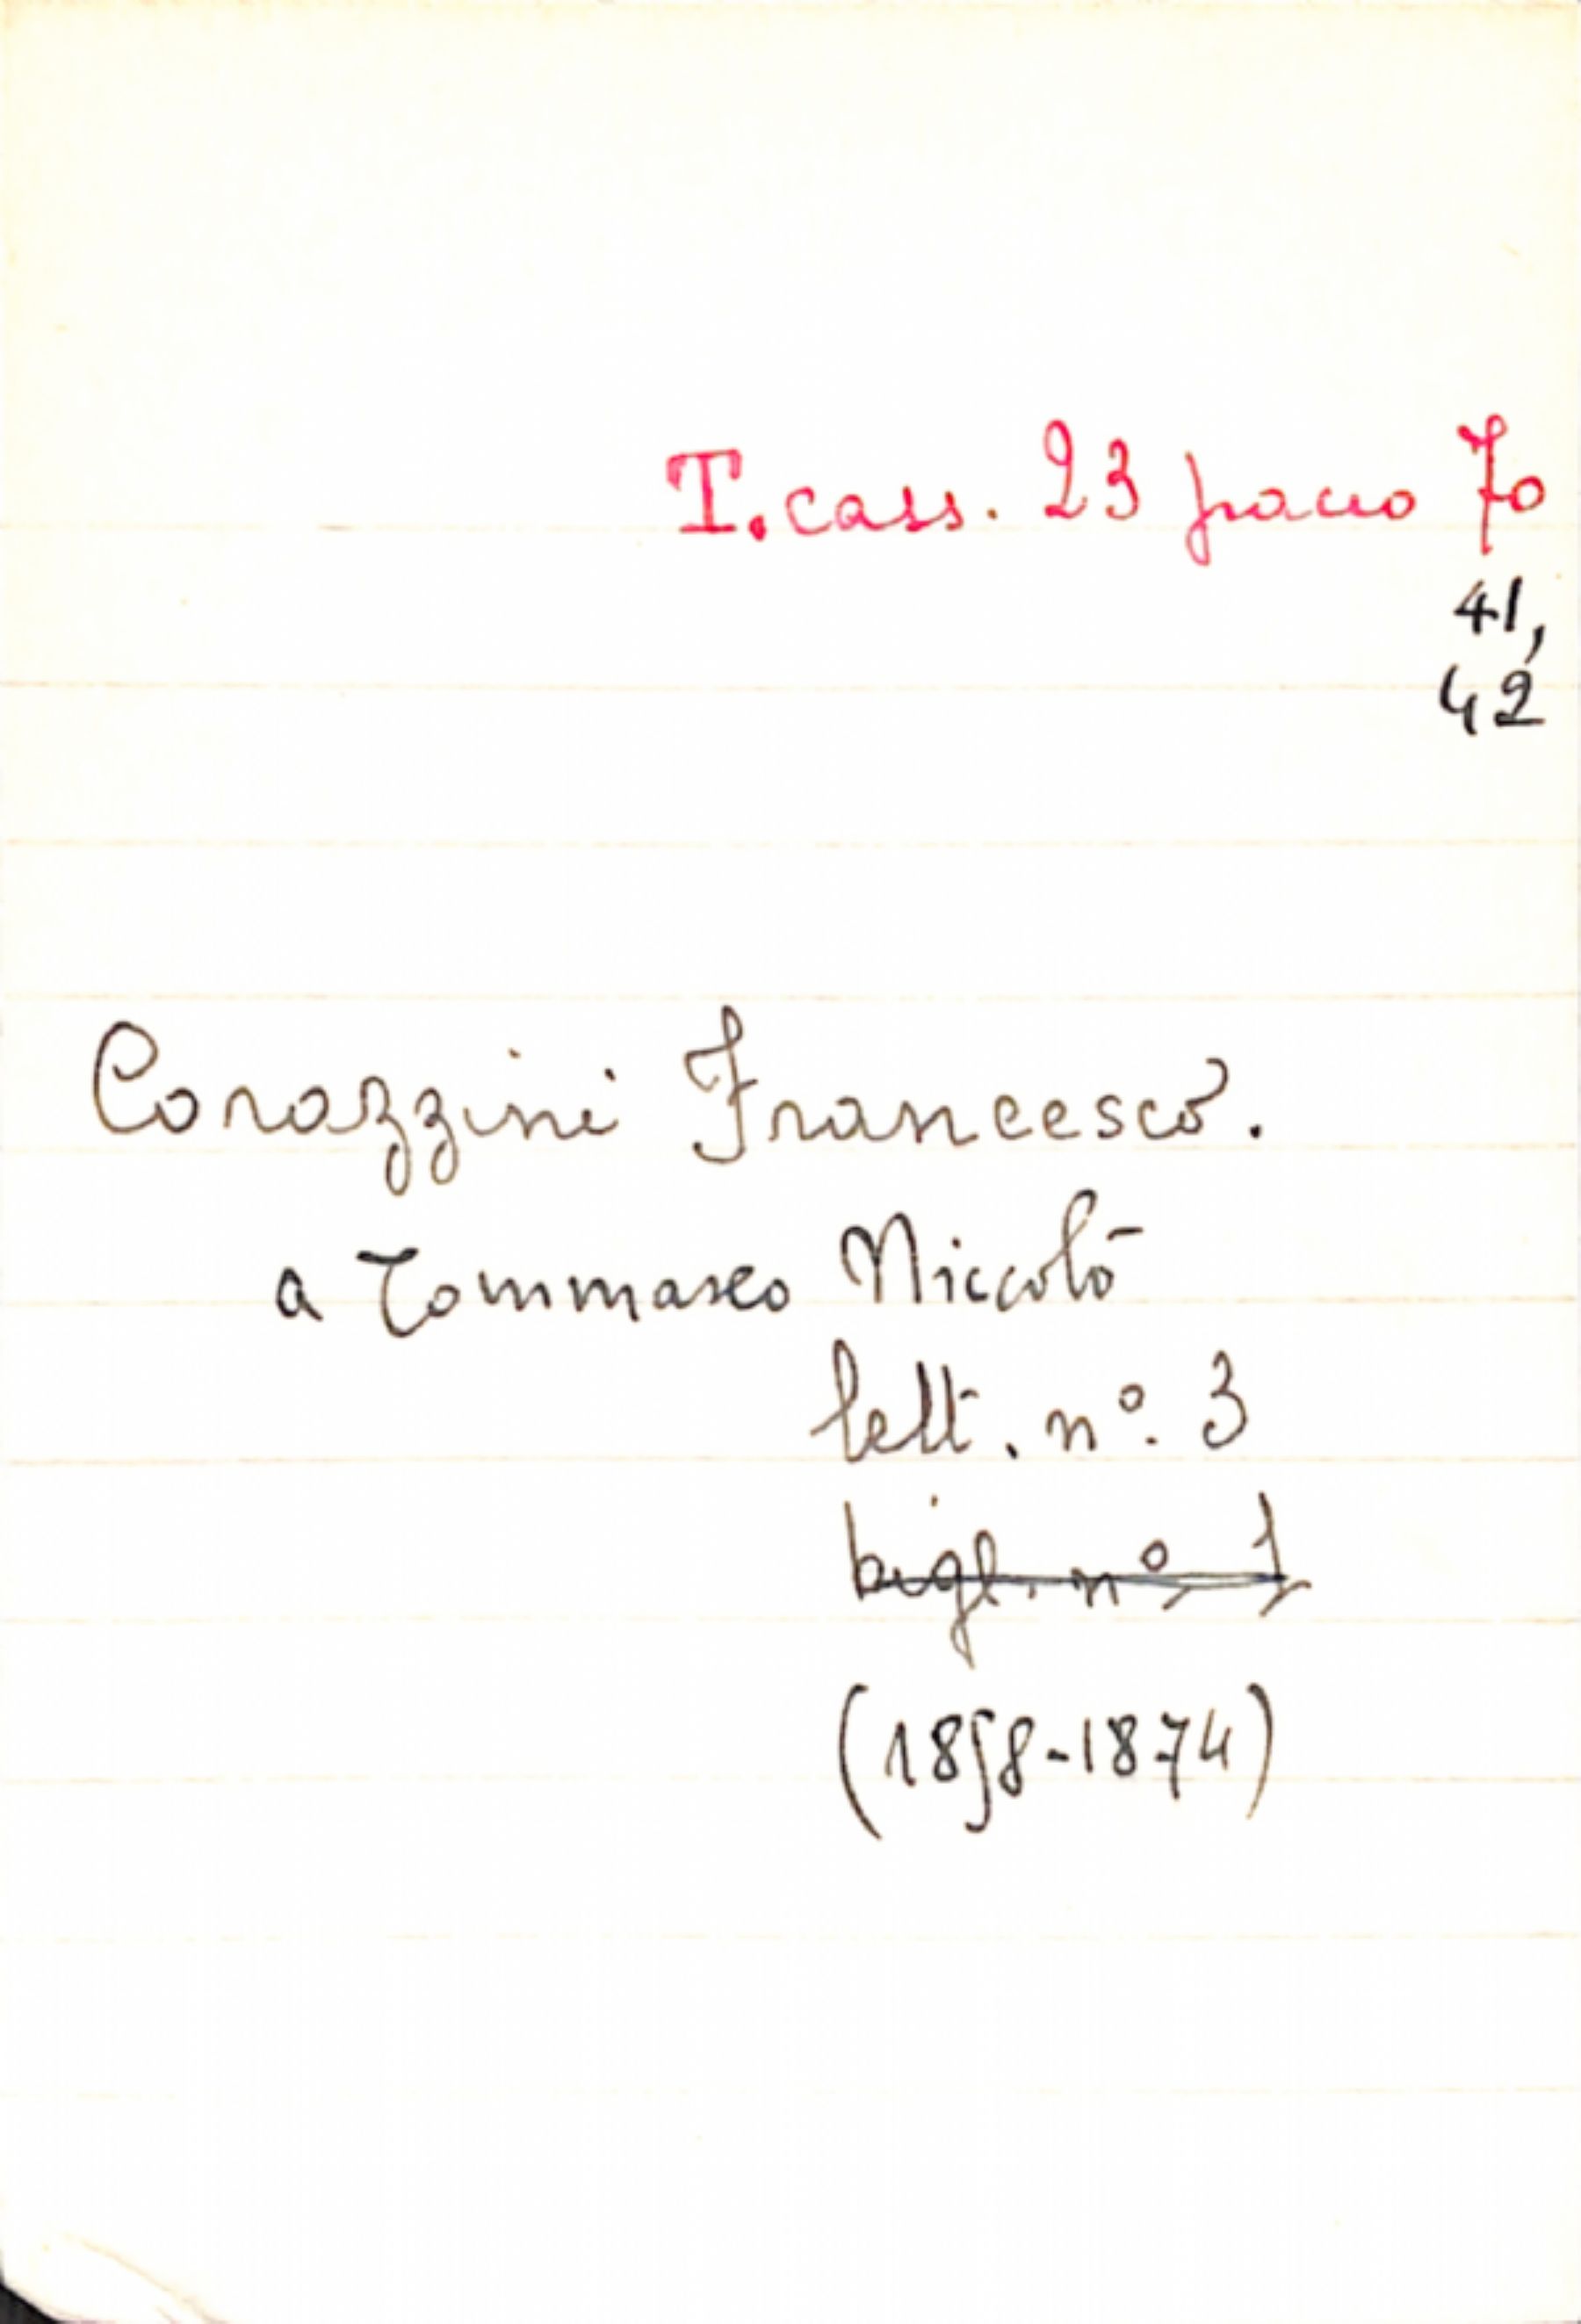 T. cass. 23 pacco 70
41,
42
Corazzini Francesco.
a Tommaseo Niccolò
lett. nº. 3
bigl. nº 1
(1858-1874)